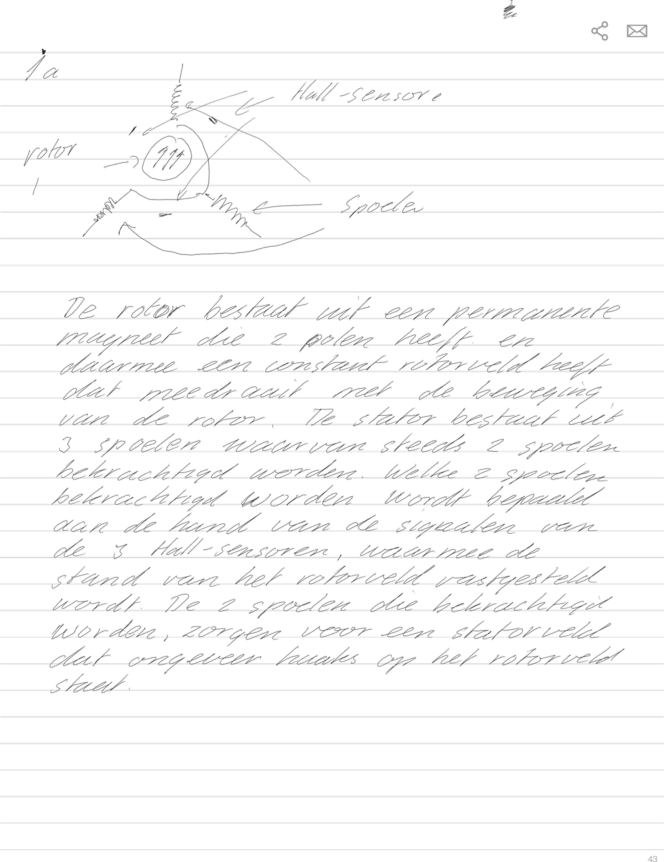 1a
Hall-sensore
rotor
spoelen
De rotor bestaat uit een permanente
magneet die 2 polen heeft en
daarmee een constant rotorveld heeft
dat meedraait met de beweging
van de rotor. De stator bestaat uit
3 spoelen waarvan steeds 2 spoelen
bekrachtigd worden. Welke 2 spoelen
bekrachtigd worden wordt bepaald
aan de hand van de signalen van
de 3 Hall-sensoren, waarmee de
stand van het rotorveld vastgesteld
wordt. De 2 spoelen die bekrachtigd
worden, zorgen voor een statorveld
dat ongeveer haaks op het rotorveld
staat.
43